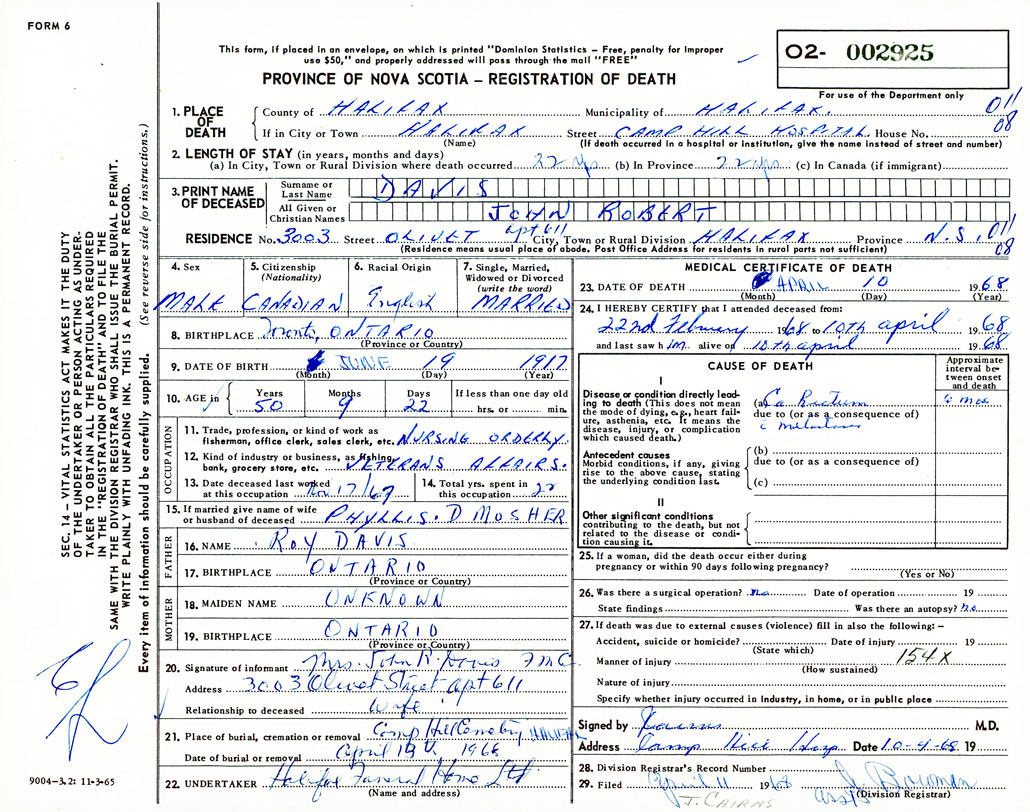 FORM 6
This form, if placed in an envelope, on which is printed "Dominion Statistics - Free, penalty for improper
use $50," and properly addressed will pass through the mail "FREE"
PROVINCE OF NOVA SCOTIA - REGISTRATION OF DEATH
O2- 002925
For use of the Department only
1. PLACE OF DEATH
County of HALIFAX Municipality of HALIFAX. 011
08
If in City or Town HALIFAX Street CAMP HILL HOSPITAL House No.
(Name) (If death occurred in a hospital or institution, give the name instead of street and number)
2. LENGTH OF STAY (in years, months and days)
(a) In City, Town or Rural Division where death occurred 22 yrs (b) In Province 22 yrs. (c) In Canada (if immigrant)
3. PRINT NAME OF DECEASED
Surname or Last Name DAVIS
All Given or Christian Names JOHN ROBERT
apt 611
RESIDENCE No. 3003 Street OLIVET City, Town or Rural Division HALIFAX Province N.S. 011
08
(Residence means usual place of abode. Post Office Address for residents in rural parts not sufficient)
4. Sex 5. Citizenship (Nationality) 6. Racial Origin 7. Single, Married, Widowed or Divorced (write the word)
MALE CANADIAN English MARRIED
8. BIRTHPLACE Toronto, ONTARIO
(Province or Country)
9. DATE OF BIRTH JUNE 19 1917
(Month) (Day) (Year)
10. AGE in Years Months Days If less than one day old
50 9 22 hrs. or min.
OCCUPATION
11. Trade, profession, or kind of work as
fisherman, office clerk, sales clerk, etc. NURSING ORDERLY.
12. Kind of industry or business, as fishing,
bank, grocery store, etc. VETERANS AFFAIRS.
13. Date deceased last worked
at this occupation Nov 17/67
14. Total yrs. spent in
this occupation 22
15. If married give name of wife
or husband of deceased PHYLLIS. D MOSHER
FATHER
16. NAME ROY DAVIS
17. BIRTHPLACE ONTARIO
(Province or Country)
MOTHER
18. MAIDEN NAME UNKNOWN
19. BIRTHPLACE ONTARIO
(Province or Country)
20. Signature of informant Mrs. John R. Davis
Address 3003 Olivet Street apt 611
Relationship to deceased Wife
21. Place of burial, cremation or removal Camp Hill Cemetery HALIFAX
Date of burial or removal April 1968
22. UNDERTAKER Halifax Funeral Home Ltd
(Name and address)
MEDICAL CERTIFICATE OF DEATH
23. DATE OF DEATH APRIL 10 1968
(Month) (Day) (Year)
24. I HEREBY CERTIFY that I attended deceased from:
22nd February 1968 to 10th april 1968
and last saw him alive on 10th april 1968
CAUSE OF DEATH
Approximate interval between onset and death
I
Disease or condition directly leading to death (This does not mean
the mode of dying, e.g., heart failure, asthenia, etc. It means the
disease, injury, or complication
which caused death.)
(a) Ca Rectum 6 mos
due to (or as a consequence of)
Antecedent causes
Morbid conditions, if any, giving
rise to the above cause, stating
the underlying condition last.
(b)
due to (or as a consequence of)
(c)
II
Other significant conditions
contributing to the death, but not
related to the disease or condition causing it.
25. If a woman, did the death occur either during
pregnancy or within 90 days following pregnancy?
(Yes or No)
26. Was there a surgical operation? no Date of operation 19
State findings Was there an autopsy? no
27. If death was due to external causes (violence) fill in also the following: -
Accident, suicide or homicide? Date of injury 19
(State which)
Manner of injury 154X
(How sustained)
Nature of injury
Specify whether injury occurred in industry, in home, or in public place
Signed by M.D.
Address Camp Hill Hosp Date 10-4-68 19
28. Division Registrar's Record Number
29. Filed April 11 1968 J. Bowman
(Division Registrar)
J. CAIRNS
SEC. 14 - VITAL STATISTICS ACT MAKES IT THE DUTY
OF THE UNDERTAKER OR PERSON ACTING AS UNDER-
TAKER TO OBTAIN ALL THE PARTICULARS REQUIRED
IN THE "REGISTRATION OF DEATH" AND TO FILE THE
SAME WITH THE DIVISION REGISTRAR WHO SHALL ISSUE THE BURIAL PERMIT.
WRITE PLAINLY WITH UNFADING INK. THIS IS A PERMANENT RECORD.
Every item of information should be carefully supplied. (See reverse side for instructions.)
9004-3.2: 11-3-65